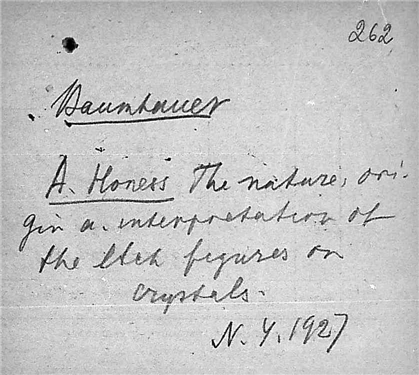 262
Baumhauer
A. Honess The nature, ori-
gin a. interpretation of
the Etch figures on
crystals.
N. Y. 1927